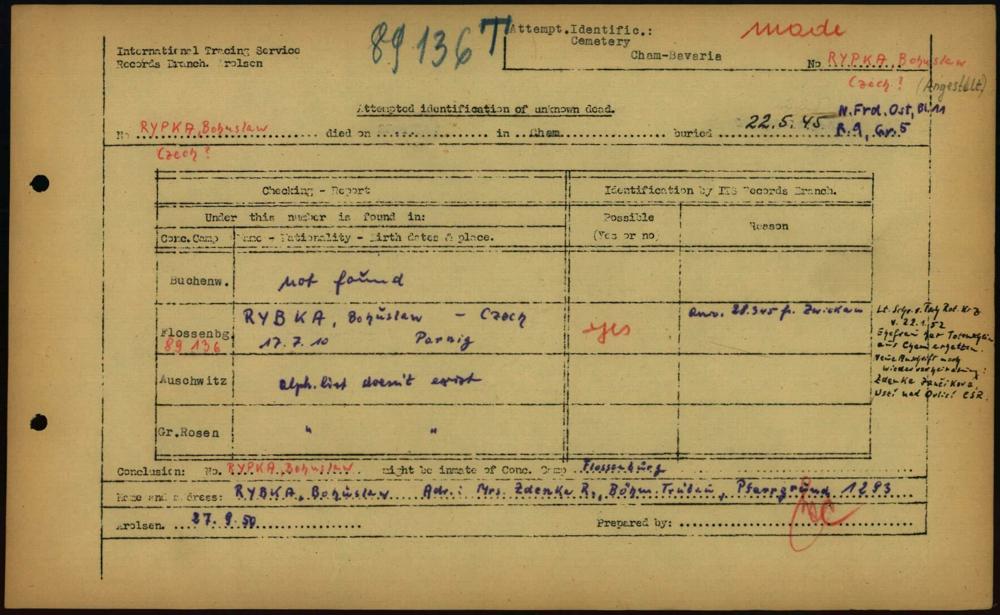 89136 T
Attempt.Identific.:
Cemetery
Cham-Bavaria
made
International Tracing Service
Records Branch. Arolsen
No RYPKA Bohuslaw
Czech? (Angestellt)
Attempted identification of unknown dead.
N.Frd.Ost, Bl.11
R.9, Gr.5
No RYPKA, Bohuslaw died on in Cham buried 22.5.45
Czech?
Checking - Report
Identification by ITS Records Branch.
Under this number is found in:
Possible
(Yes or no)
Reason
Conc.Camp
Name - Nationality - Birth dates & place.
Buchenw. not found
Flossenbg
89 136
RYBKA, Bohuslaw - Czech
17.7.10 Parnig
yes
arr. 28.3.45 f. Zwickau
v. 22.1.52
Zdenka
Ustí nad Orlicí ČSR.
Auschwitz alph. list doesn't exist
Gr.Rosen " "
Conclusion: No. RYPKA, Bohuslaw might be inmate of Conc. Camp Flossenbürg
Name and adress: RYBKA, Bohuslaw Adr.: Mrs. Zdenka R., Böhm. Trübau, Pfarrgrund 1293
Arolsen. 27.9.50 Prepared by: